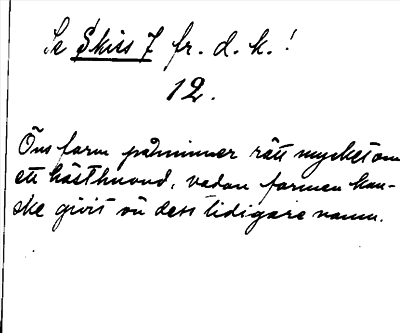 Se Skiss 7 fr. d. k.!
12.
Öns form påminner rätt mycket om
ett hästhuvud, vadan formen kan-
ske givit ön dess tidigare namn.